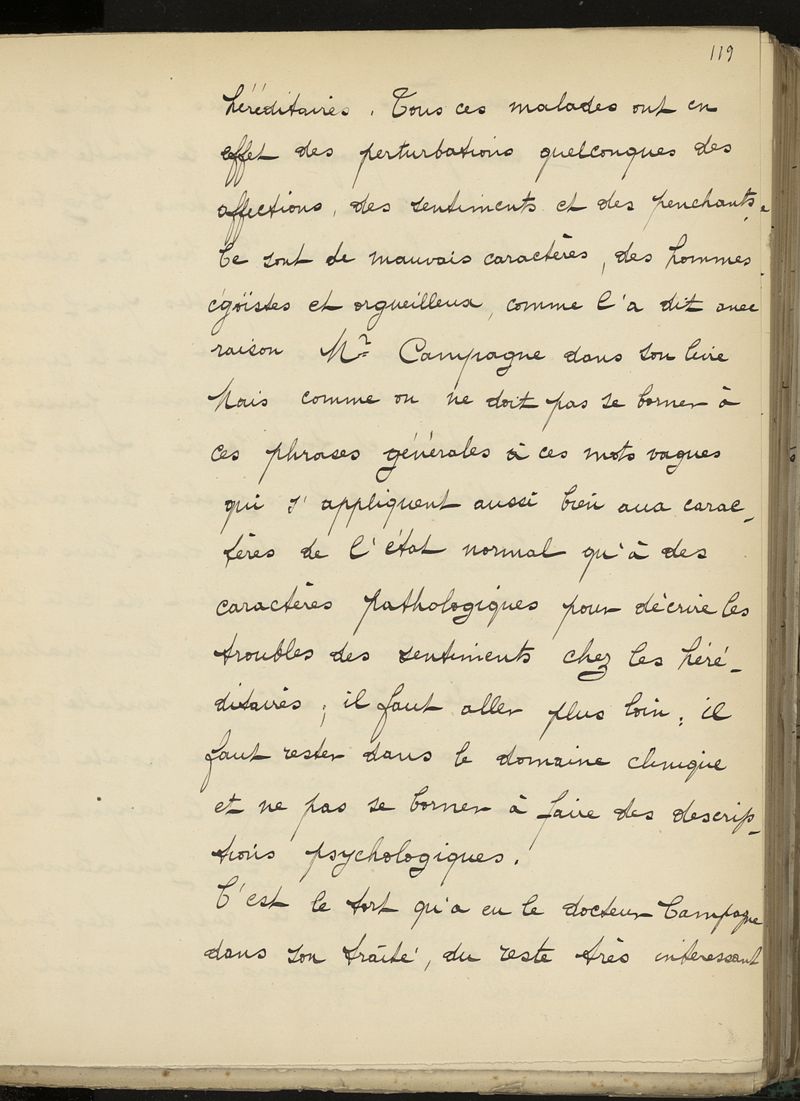 119
héréditaires. Tous ces malades ont en
effet des perturbations quelconques des
affections, des sentiments et des penchants.
Ce sont de mauvais caractères, des hommes
égoïstes et orgueilleux, comme l'a dit avec
raison Mr Campagne dans son livre
Mais comme on ne doit pas se borner à
ces phrases générales à ces mots vagues
qui s'appliquent aussi bien aux carac-
tères de l'état normal qu'à des
caractères pathologiques pour décrire les
troubles des sentiments chez les héré-
ditaires; il faut aller plus loin; il
faut rester dans le domaine clinique
et ne pas se borner à faire des descrip-
tions psychologiques.
C'est le tort qu'a eu le docteur Campagne
dans son traité, du reste très intéressant